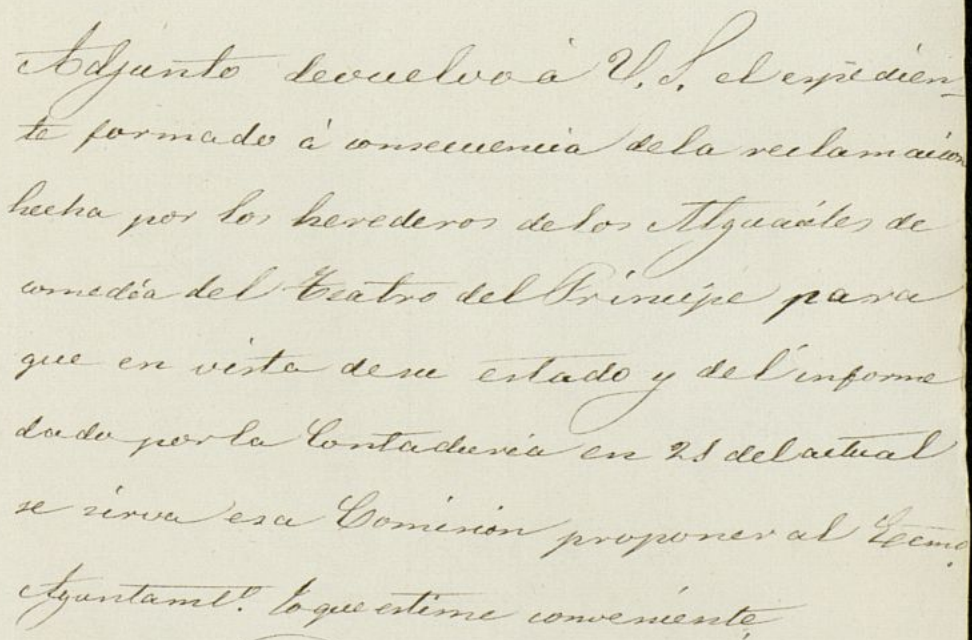 Adjunto devuelvo à V. S. el expedien-
te formado à consecuencia dela reclamacion
hecha por los herederos delos Alguaciles de
comedia del Teatro del Principe para
que en vista desu estado y del informe
dado por la Contaduria en 28 del actual
se sirva esa Comision proponer al Excmo.
Ayuntamt.º lo que estime conveniente